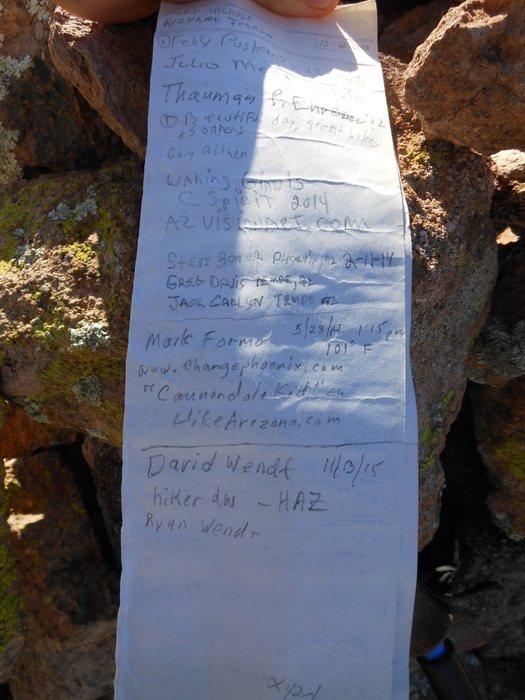 NICHOLS
RICHARD
① Felix
Julio
Thauman P.
① Beautiful day, great hike
Gary Althen
WAKING GIANTS
C SPIRIT 2014
AZ VISIONNET.COM
STEVE PHOENIX, AZ 2-11-14
GREG DAVIS TEMPE, AZ
JACK CARLYN TEMPE AZ
Mark Formo 5/28/14 1:15 pm
101° F
www.changephoenix.com
"Cannondale Kid" on
HikeArizona.com
David Wendt 11/13/15
hiker dw - HAZ
Ryan Wendt